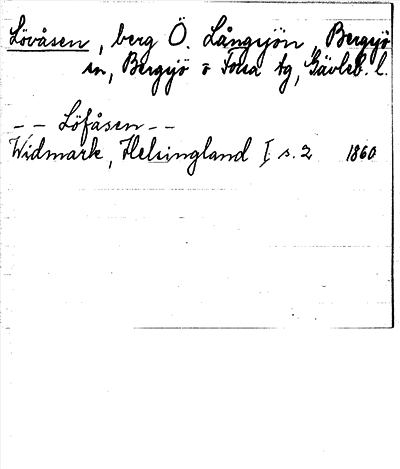 Lövåsen, berg Ö. Långsjön, Bergsjö
sn, Bergsjö o Forsa tg, Gävleb. l.
- - Löfåsen - -
Widmark, Helsingland I s. 2 1860